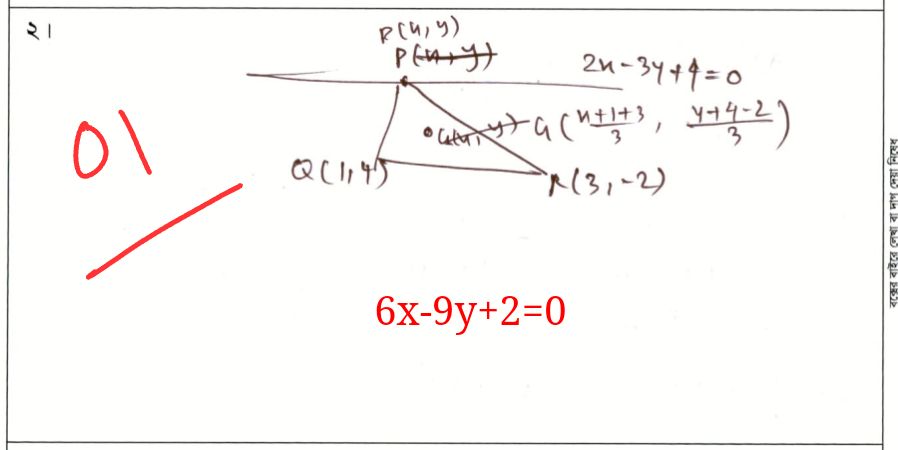 ২।
P(x, y)
P(x, y)
2x-3y+4=0
G(x, y) G(x+1+3/3, y+4-2/3)
Q(1,4)
R(3,-2)
01
6x-9y+2=0
বক্সের বাইরে লেখা বা দাগ দেয়া নিষেধ